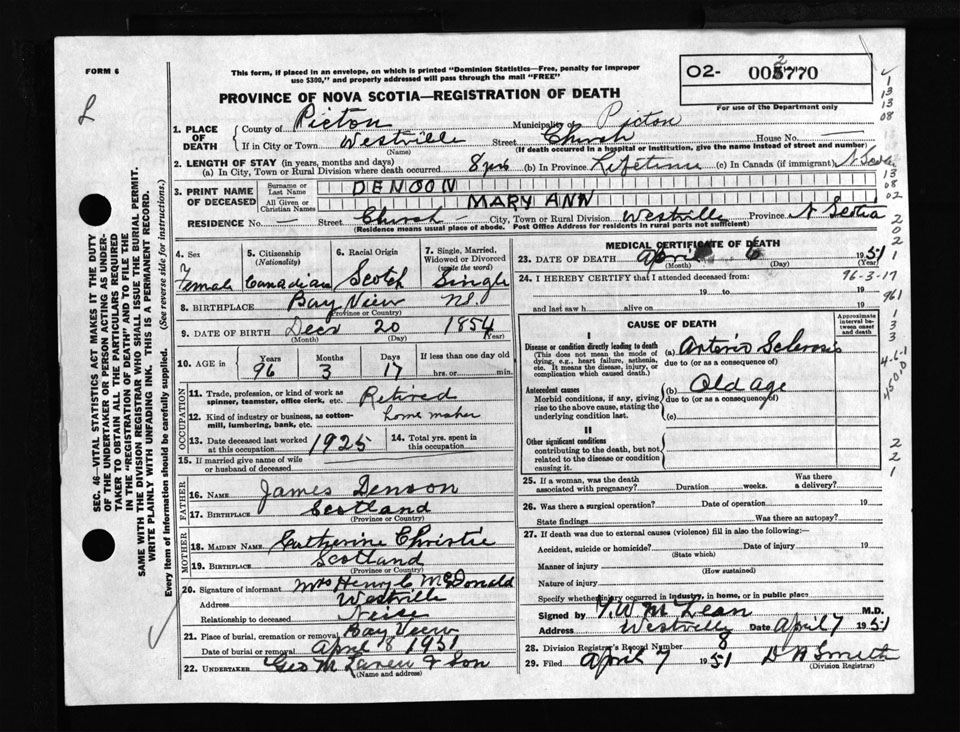 FORM 6
This form, if placed in an envelope, on which is printed "Dominion Statistics—Free, penalty for improper
use $300," and properly addressed will pass through the mail "FREE"
02- 005770
2
For use of the Department only
L
PROVINCE OF NOVA SCOTIA—REGISTRATION OF DEATH
1. PLACE OF DEATH
County of Pictou Municipality of Pictou
If in City or Town Westville Street Church House No. —
(Name) (If death occurred in a hospital or institution, give the name instead of street and number)
2. LENGTH OF STAY (in years, months and days)
(a) In City, Town or Rural Division where death occurred 8 yrs (b) In Province Lifetime (c) In Canada (if immigrant)
3. PRINT NAME OF DECEASED
Surname or Last Name DENOON
All Given or Christian Names MARY ANN
RESIDENCE No. Street Church City, Town or Rural Division Westville Province N Scotia
(Residence means usual place of abode. Post Office Address for residents in rural parts not sufficient)
4. Sex Female
5. Citizenship (Nationality) Canadian
6. Racial Origin Scotch
7. Single, Married, Widowed or Divorced (write the word) Single
8. BIRTHPLACE Bay View NS.
(Province or Country)
9. DATE OF BIRTH Decr 20 1854
(Month) (Day) (Year)
10. AGE in Years 96 Months 3 Days 17 If less than one day old
hrs. or min.
OCCUPATION
11. Trade, profession, or kind of work as spinner, teamster, office clerk, etc. Retired
12. Kind of industry or business, as cotton-mill, lumbering, bank, etc. home maker
13. Date deceased last worked at this occupation 1925 14. Total yrs. spent in this occupation
15. If married give name of wife or husband of deceased
FATHER
16. NAME James Denoon
17. BIRTHPLACE Scotland
(Province or Country)
MOTHER
18. MAIDEN NAME Catherine Christie
19. BIRTHPLACE Scotland
(Province or Country)
20. Signature of informant Mrs Henry C McDonald
Address Westville
Relationship to deceased Neise
21. Place of burial, cremation or removal Bay View
Date of burial or removal April 8 1951
22. UNDERTAKER Geo McLaren & Son
(Name and address)
MEDICAL CERTIFICATE OF DEATH
23. DATE OF DEATH April 6 1951
(Month) (Day) (Year)
96-3-17
24. I HEREBY CERTIFY that I attended deceased from:
19 to 19
and last saw h alive on 19
CAUSE OF DEATH
Approximate interval between onset and death
Disease or condition directly leading to death
(This does not mean the mode of dying, e.g., heart failure, asthenia, etc. It means the disease, injury, or complication which caused death.)
(a) Arterio Sclerosis
due to (or as a consequence of)
Antecedent causes
Morbid conditions, if any, giving rise to the above cause, stating the underlying condition last.
(b) Old Age
due to (or as a consequence of)
(c)
II
Other significant conditions
contributing to the death, but not related to the disease or condition causing it.
25. If a woman, was the death associated with pregnancy? Duration weeks. Was there a delivery?
26. Was there a surgical operation? Date of operation 19
State findings Was there an autopsy?
27. If death was due to external causes (violence) fill in also the following:
Accident, suicide or homicide? Date of injury 19
(State which)
Manner of injury
(How sustained)
Nature of injury
Specify whether injury occurred in industry, in home, or in public place
Signed by M.D.
Address Westville Date April 7 1951
28. Division Registrar's Record Number 8
29. Filed April 7 1951 D H Smith
(Division Registrar)
SEC. 46—VITAL STATISTICS ACT MAKES IT THE DUTY
OF THE UNDERTAKER OR PERSON ACTING AS UNDERTAKER TO OBTAIN ALL THE PARTICULARS REQUIRED
IN THE "REGISTRATION OF DEATH" AND TO FILE THE
SAME WITH THE DIVISION REGISTRAR WHO SHALL ISSUE THE BURIAL PERMIT.
WRITE PLAINLY WITH UNFADING INK. THIS IS A PERMANENT RECORD.
Every item of information should be carefully supplied. (See reverse side for instructions.)